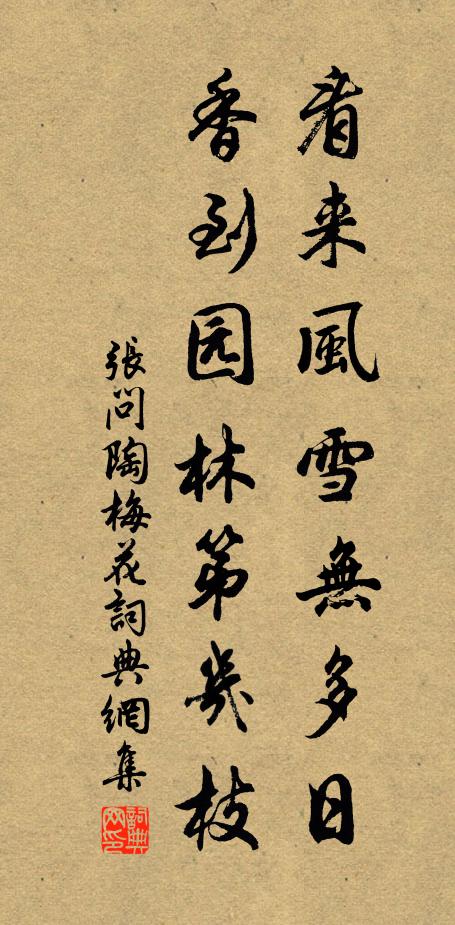 看来風雪無多日
香到园林第幾枝
張問陶梅花詞典網集
詞典
网印